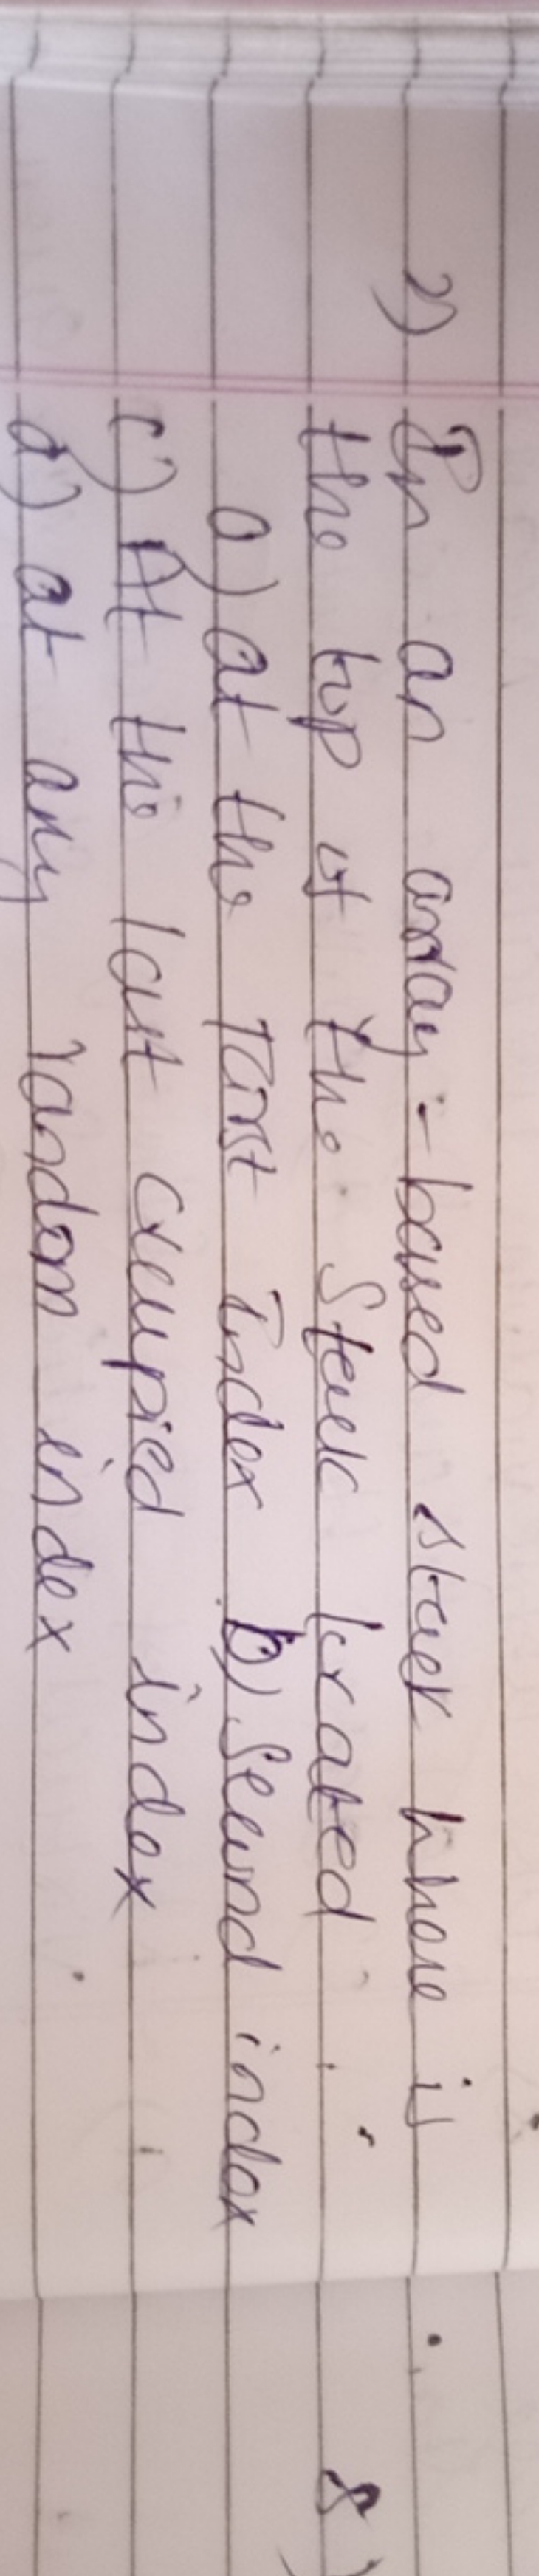 2) In an array-based stack where is
the top of the stack located
a) at the first Index b) Second index
c) At the last occupied index
d) at any random index
8)